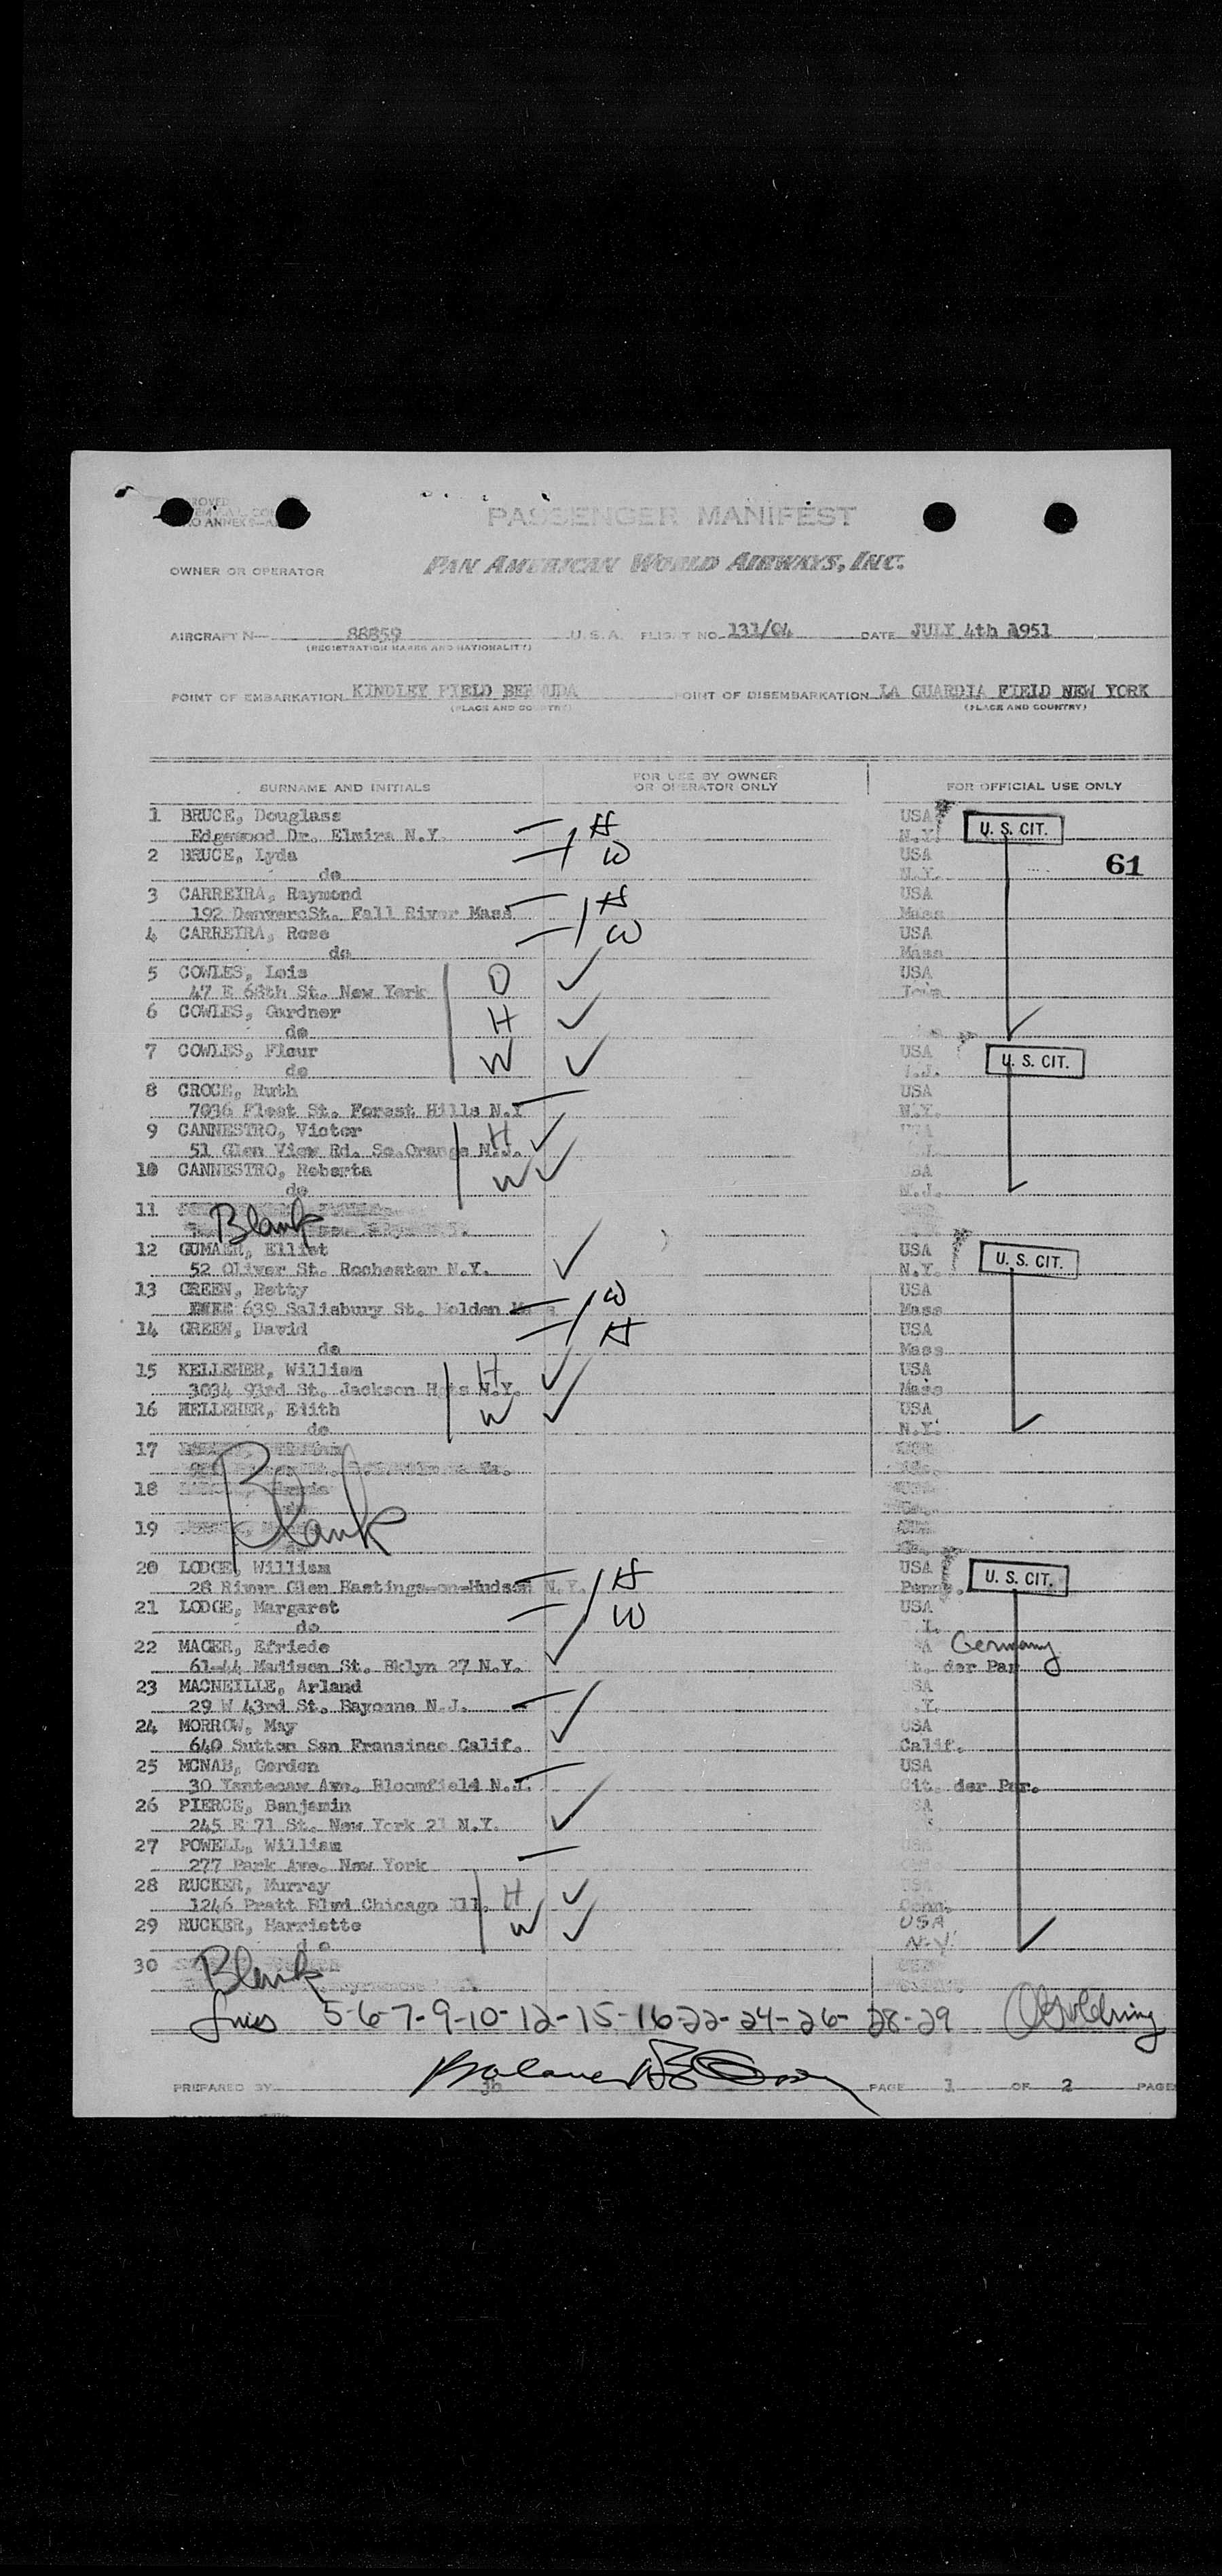 PASSENGER MANIFEST
OWNER OR OPERATOR PAN AMERICAN WORLD AIRWAYS, INC.
AIRCRAFT N— 88859 U.S.A. FLIGHT NO. 131/04 DATE JULY 4th 1951
(REGISTRATION MARKS AND NATIONALITY)
POINT OF EMBARKATION KINDLEY FIELD BERMUDA POINT OF DISEMBARKATION LA GUARDIA FIELD NEW YORK
(PLACE AND COUNTRY) (PLACE AND COUNTRY)
SURNAME AND INITIALS FOR USE BY OWNER OR OPERATOR ONLY FOR OFFICIAL USE ONLY
1 BRUCE, Douglass H USA U. S. CIT.
Edgewood Dr. Elmira N.Y. N.Y.
2 BRUCE, Lyda W USA 61
do N.Y.
3 CARREIRA, Raymond H USA
192 St. Fall River Mass Mass
4 CARREIRA, Rose W USA
do Mass
5 COWLES, Lois D USA
47 E 68th St. New York
6 COWLES, Gardner H
do
7 COWLES, Fleur W USA U. S. CIT.
do
8 CROCE, Ruth USA
7036 Fleet St. Forest Hills N.Y N.Y.
9 CANNESTRO, Victor H
51 Glen View Rd. So.Orange N.J.
10 CANNESTRO, Roberta W
do N.J.
11 Blank
12 GUMAER, Elliot USA U. S. CIT.
52 Oliver St. Rochester N.Y. N.Y.
13 GREEN, Betty W USA
639 Salisbury St. Holden Mass Mass
14 GREEN, David H USA
do Mass
15 KELLEHER, William H USA
3034 93rd St. Jackson Hgts N.Y. Mass
16 HELLEHER, Edith W USA
do N.Y.
17
18 Blank
19
20 LODGE, William H USA U. S. CIT.
28 River Glen Hastings-on-Hudson N.Y. Penn.
21 LODGE, Margaret W USA
do
22 MAGER, Efriede Germany
61-44 Madison St. Bklyn 27 N.Y. der Par
23 MACNEILLE, Arland
29 W 43rd St. Bayonne N.J.
24 MORROW, May USA
640 Sutton San Fransisco Calif. Calif.
25 MCNAB, Gordon USA
30 Yantacaw Ave. Bloomfield N.J. Cit. der Par.
26 PIERCE, Benjamin
245 E 71 St. New York 21 N.Y.
27 POWELL, William
277 Park Ave. New York
28 RUCKER, Murray H
1246 Pratt Blvd Chicago Ill. Conn.
29 RUCKER, Harriette W USA
do N.Y.
30 Blank
5-6-7-9-10-12-15-16-22-24-26-28-29
PREPARED BY PAGE 1 OF 2 PAGE